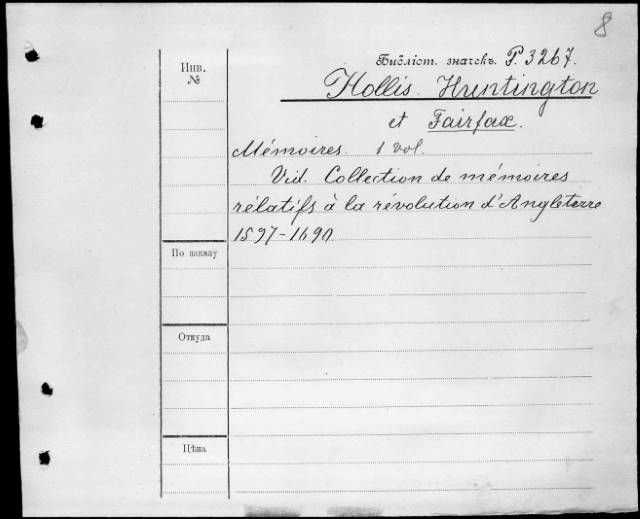 8
Библіот. значекъ. P. 3267.
Инв.
№
Hollis. Huntington
et Fairfax.
Mémoires. 1 vol.
Vid. Collection de mémoires
rélatifs à la révolution d'Angleterre
1597-1690
По заказу
Откуда
Цѣна